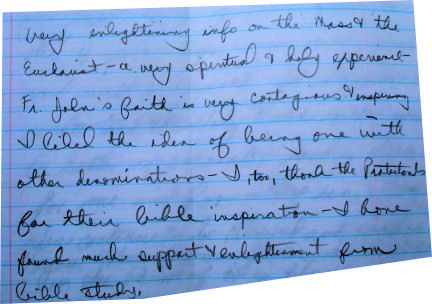 very enlightening info on the Mass & the
Eucharist - a very spiritual & holy experience -
Fr. John's faith is very contagious & inspiring
I liked the idea of being one with
other denominations - I, too, thank the Protestants
for their bible inspiration - I have
found much support & enlightenment from
bible study.